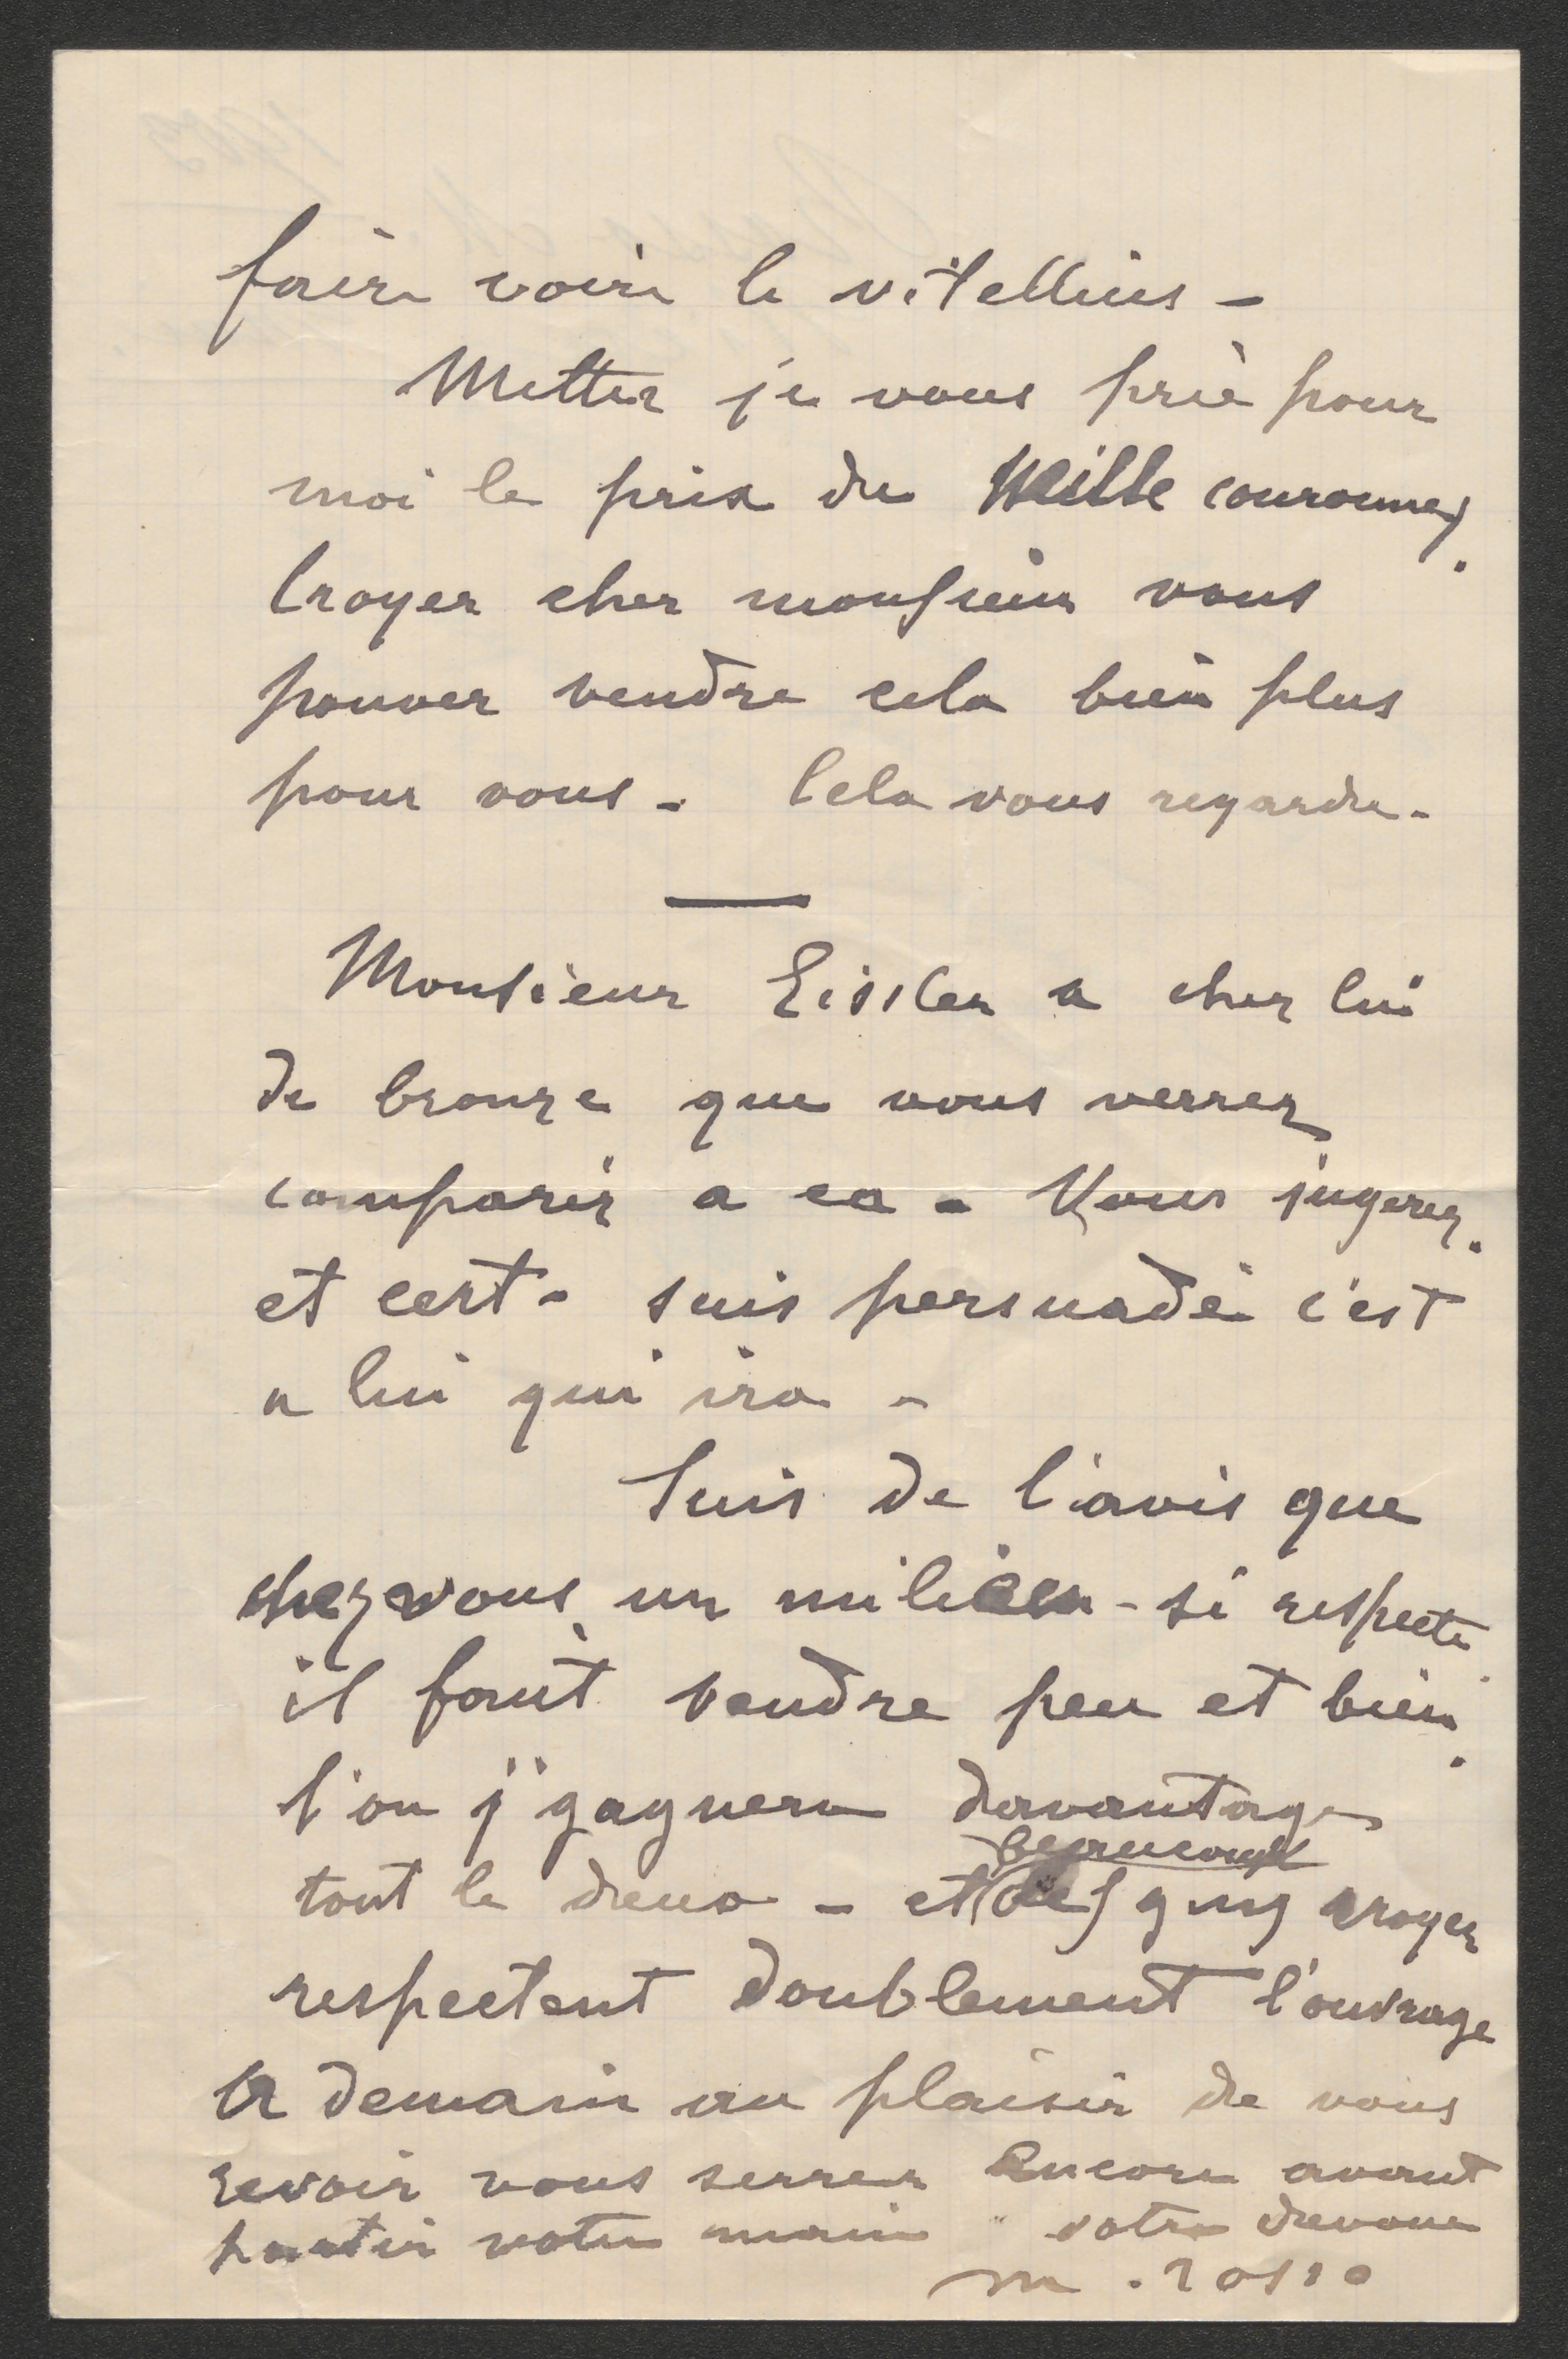 faire voire le vitellius -
Metter je vous priè pour
moi le prix de Mille couronnes.
Croyer cher monsieur vous
pouver vendre cela bien plus
pour vous - Cela vous regarde -
Monsieur Eissler a cher lui
de bronze que vous verrez
comparir a ca - Vous jugerez.
et cert - suis persuadé c'est
a lui qui ira -
Suis de l'avis que
chez vous un milieu - si respecte
il faut vendre peu et bien.
l'on j'gagnera davantage
beaucoup
tout le deux - et croyer
respectent doublement l'ouvrage
A demain au plaisir de vous
revoir vous serrer encore avant
partir votre main votre devoue
m. rosso